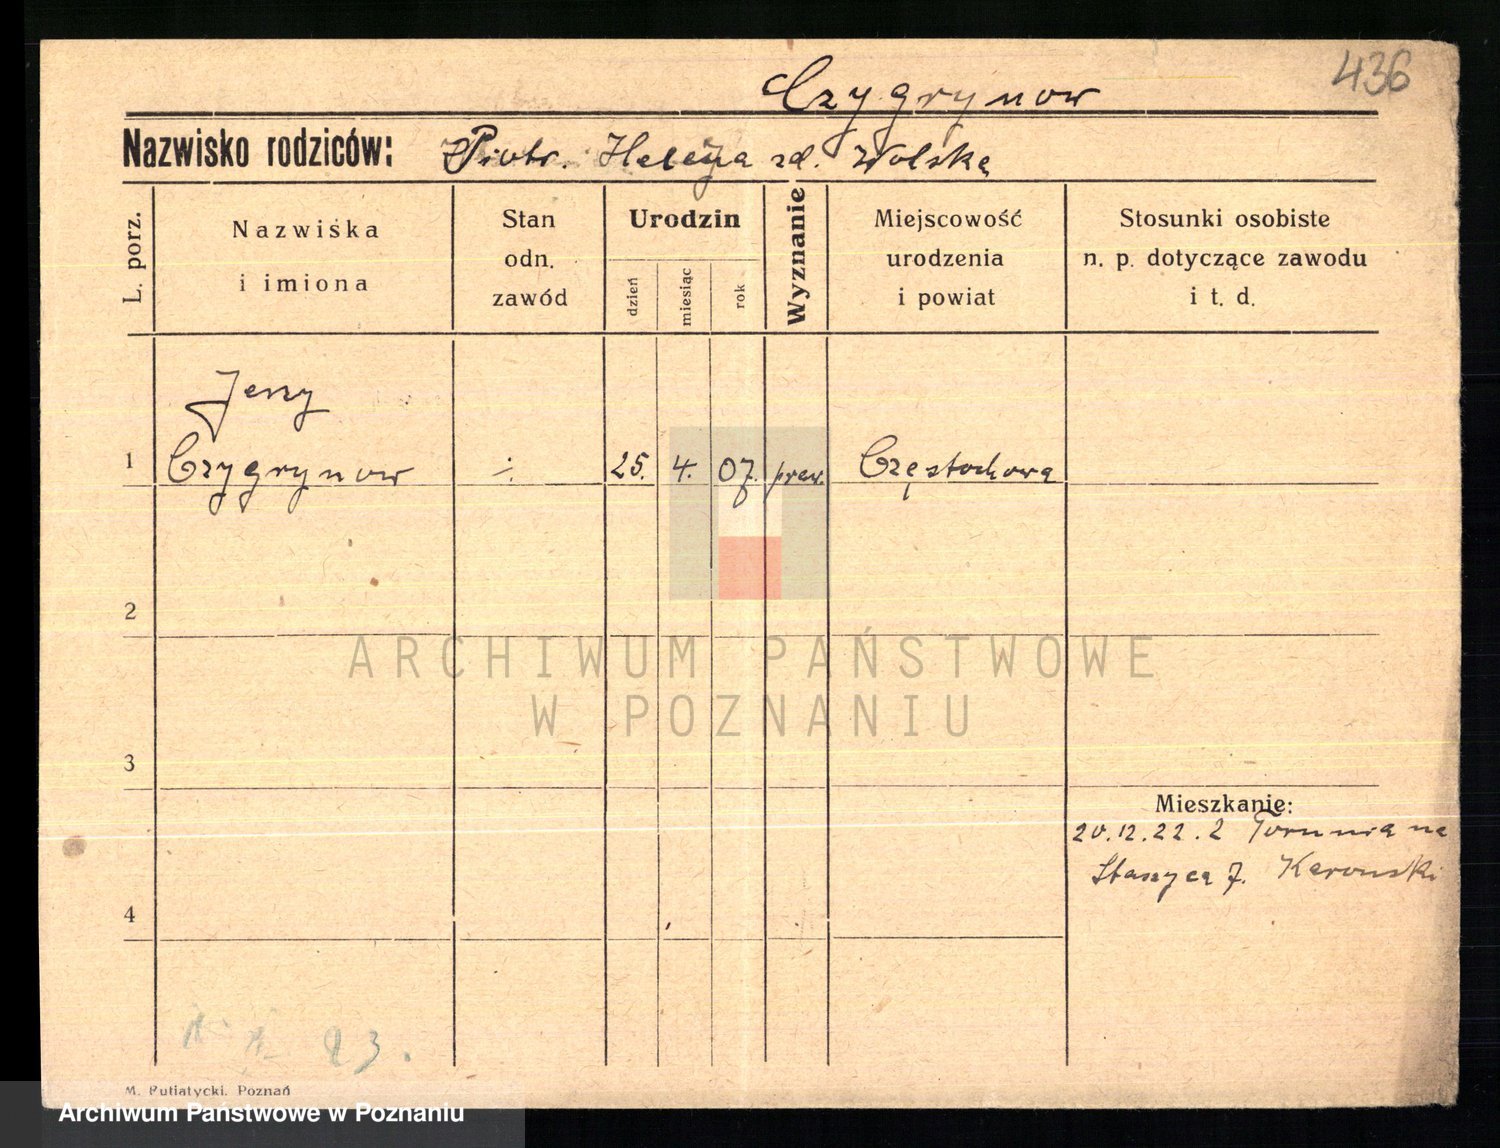 436
Czygrynow
Nazwisko rodziców: Piotr. Helena zd. Wolska
L. porz.
Nazwiska
i imiona
Stan
odn.
zawód
Urodzin
dzień
miesiąc
rok
Wyznanie
Miejscowość
urodzenia
i powiat
Stosunki osobiste
n. p. dotyczące zawodu
i t. d.
Jerzy
1 Czygrynow ÷ 25. 4. 07. praw. Częstochowa
2
ARCHIWUM PAŃSTWOWE
W POZNANIU
3
Mieszkanie:
20.12.22. z Torunia na
Staszyca 7. Karonski
4
23.
M. Putiatycki, Poznań
Archiwum Państwowe w Poznaniu